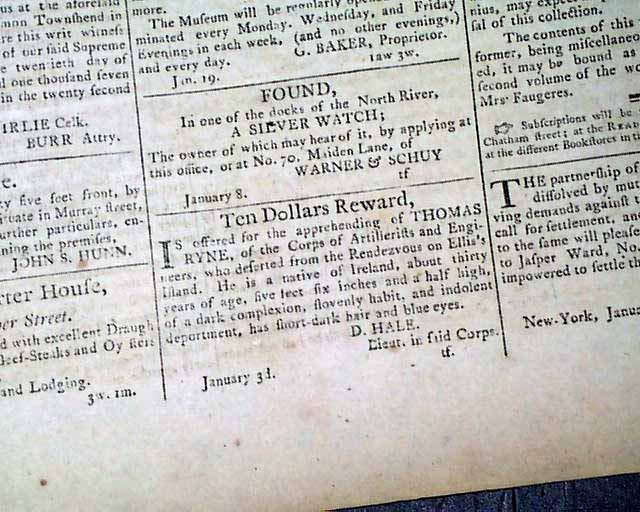 us at the aforesaid
Townshend in
re this writ witness
of our said Supreme
e twentieth day of
one thousand seven
in the twenty second
IRLIE Celk.
BURR Attry.
e.
ty five feet front, by
situate in Murray street,
urther particulars, en-
ning the premises.
JOHN S. HUNN.
rter House,
er Street.
d with excellent Draugh
Beef-Steaks and Oysters
and Lodging.
3w. 1m.
more.
The Museum will be regularly
minated every Monday, Wednesday, and Friday
Evenings in each week, (and no other evenings,)
and every day.
G. BAKER, Proprietor.
Jan. 19.
law 3w.
FOUND,
In one of the docks of the North River,
A SILVER WATCH;
The owner of which may hear of it, by applying at
this office, or at No. 70, Maiden Lane, of
WARNER & SCHUY
January 8.
tf
Ten Dollars Reward,
IS offered for the apprehending of THOMAS
RYNE, of the Corps of Artillerists and Engi-
neers, who deserted from the Rendezvous on Ellis's
Island. He is a native of Ireland, about thirty
years of age, five feet six inches and a half high,
of a dark complexion, slovenly habit, and indolent
department, has short-dark hair and blue eyes.
D. HALE.
Lieut. in said Corps.
January 3d.
tf.
nius, may expect
sal of this collection.
The contents of this
former, being miscellaneo
ed, it may be bound as
second volume of the wo
Mrs. Faugeres.
Subscriptions will be
Chatham street; at the READ
at the different Bookstores in t
THE partnership of
dissolved by mu
ving demands against t
call for settlement, an
to the same will please
to Jasper Ward, No.
impowered to settle th
New-York, Janua